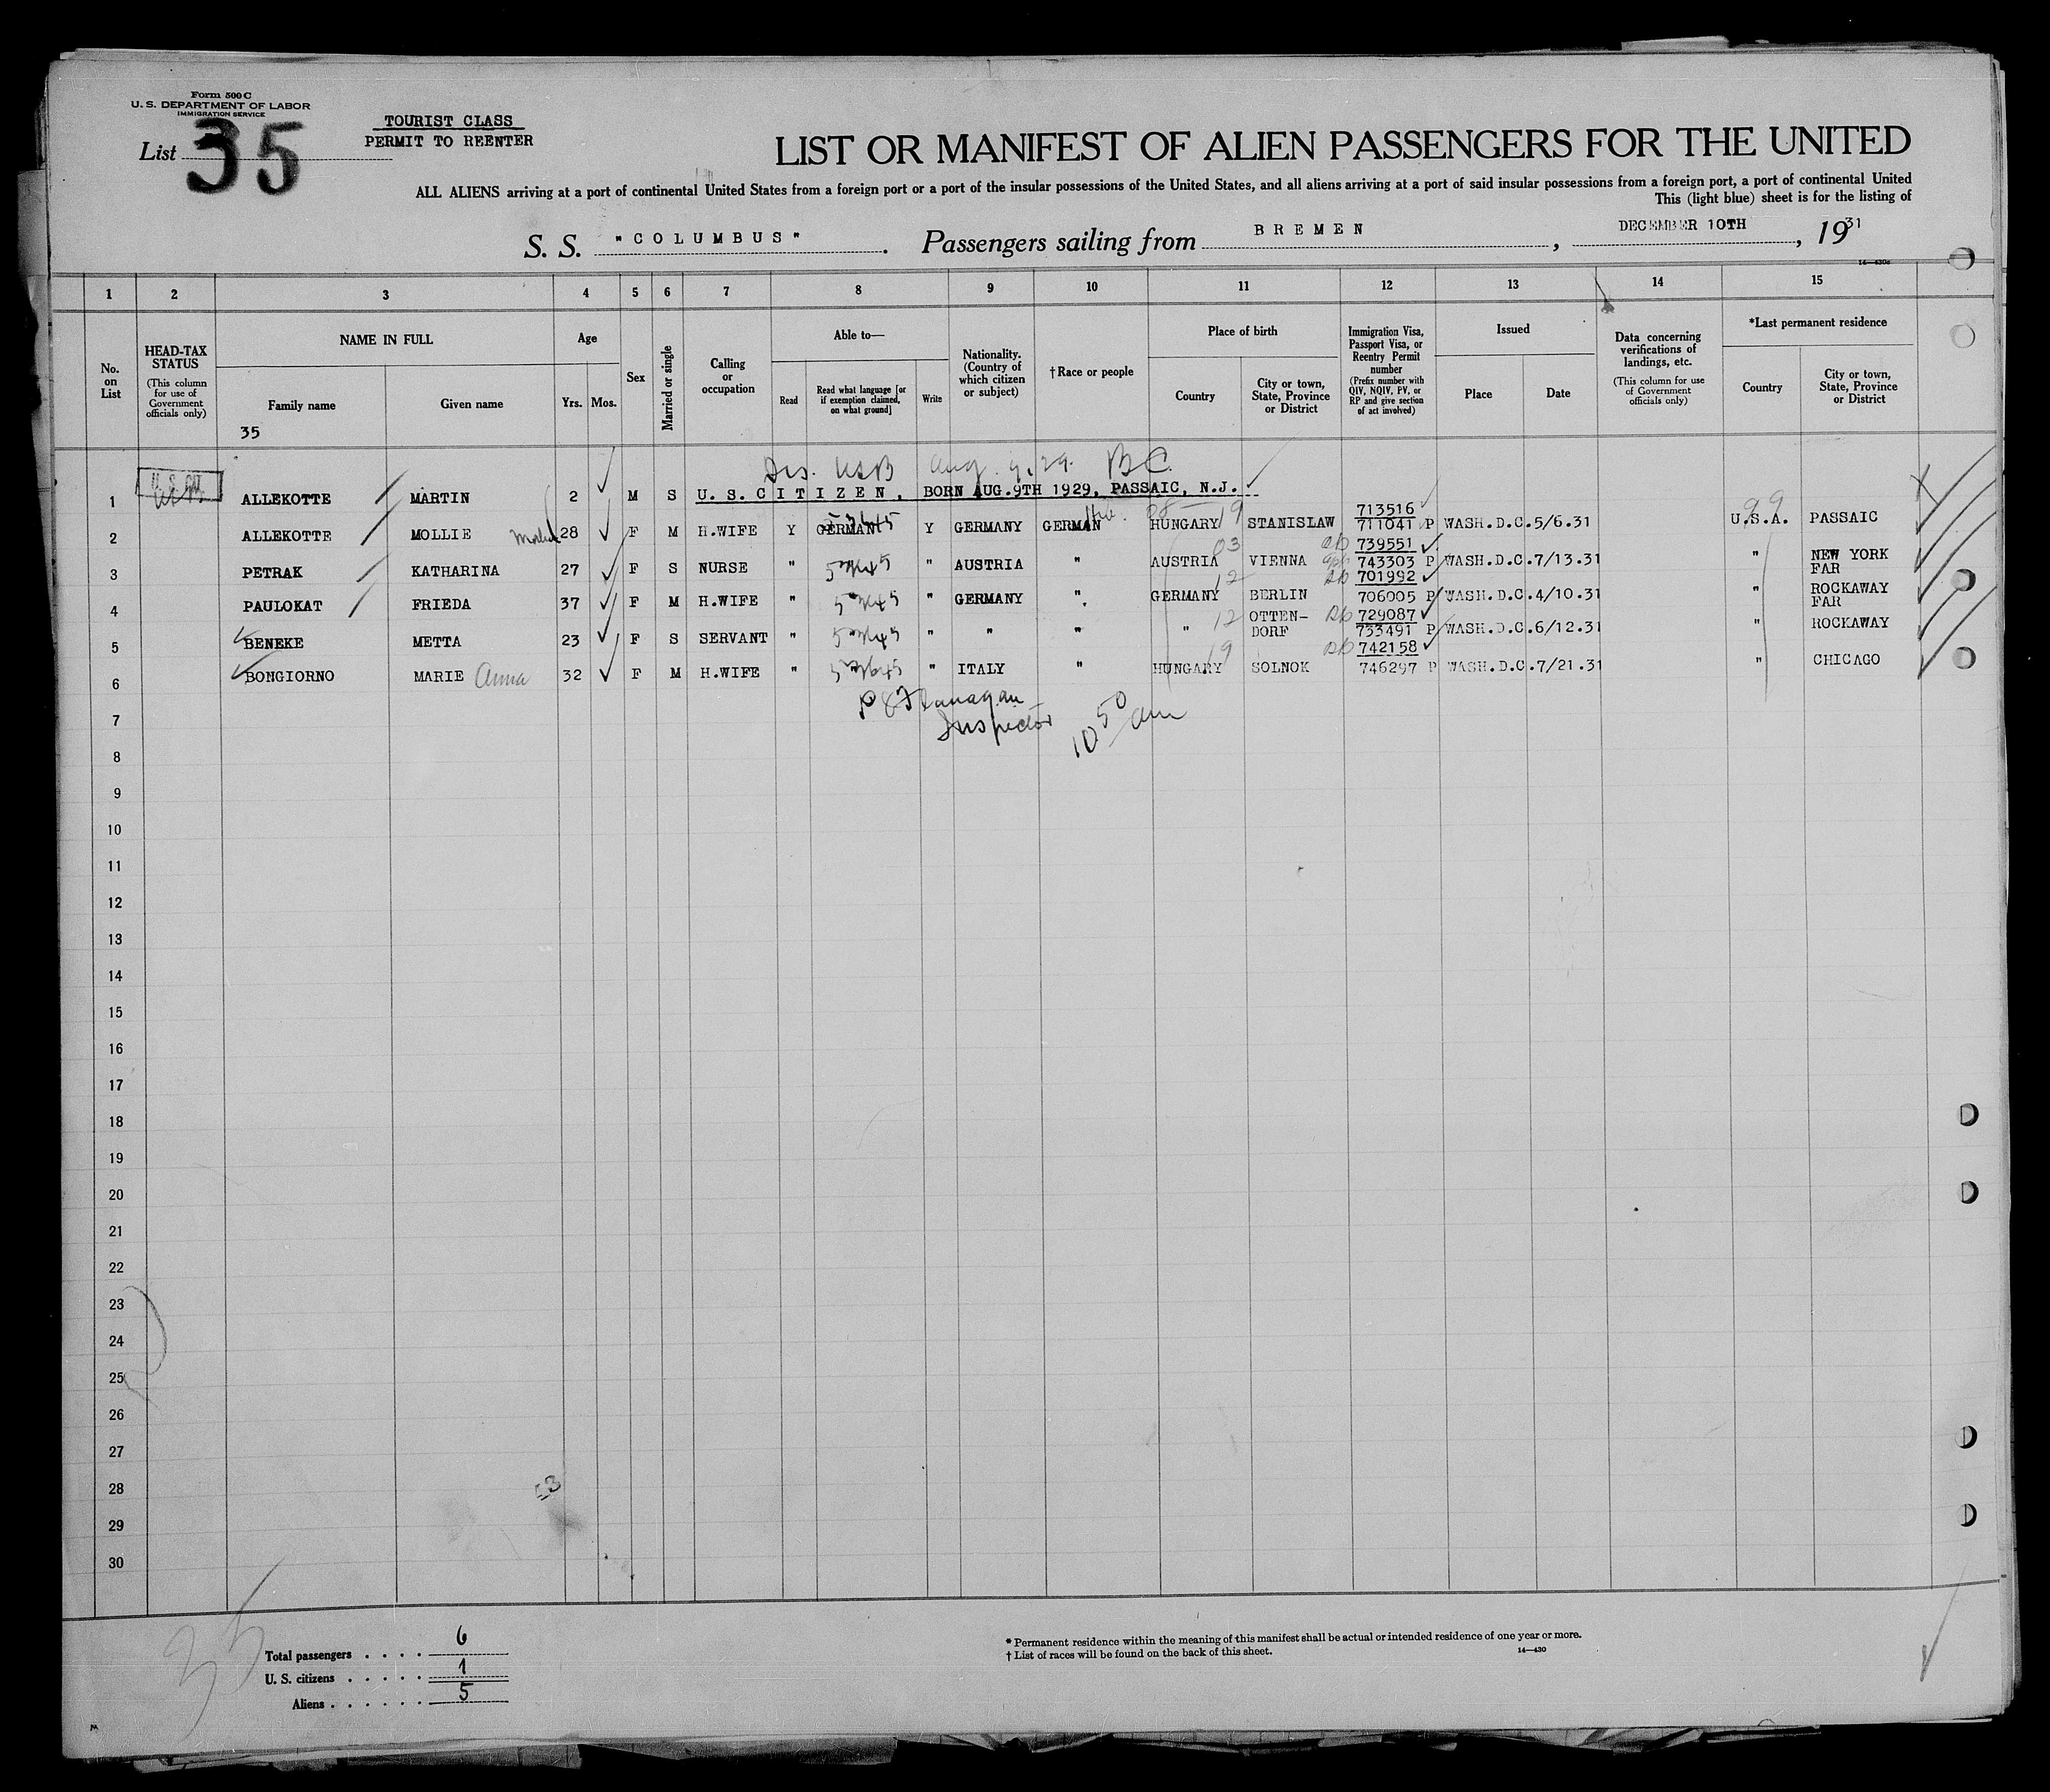 Form 500 C
U. S. DEPARTMENT OF LABOR
IMMIGRATION SERVICE
List 35
TOURIST CLASS
PERMIT TO REENTER
LIST OR MANIFEST OF ALIEN PASSENGERS FOR THE UNITED
ALL ALIENS arriving at a port of continental United States from a foreign port or a port of the insular possessions of the United States, and all aliens arriving at a port of said insular possessions from a foreign port, a port of continental United
This (light blue) sheet is for the listing of
S. S. "COLUMBUS". Passengers sailing from BREMEN, DECEMBER 10TH, 1931
14—430c
1 2 3 4 5 6 7 8 9 10 11 12 13 14 15
No. on List
HEAD-TAX STATUS (This column for use of Government officials only)
NAME IN FULL
Family name
Given name
35
Age
Yrs.
Mos.
Sex
Married or single
Calling or occupation
Able to—
Read
Read what language [or if exemption claimed, on what ground]
Write
Nationality. (Country of which citizen or subject)
†Race or people
Place of birth
Country
City or town, State, Province or District
Immigration Visa, Passport Visa, or Reentry Permit number (Prefix number with QIV, NQIV, PV, or RP and give section of act involved)
Issued
Place
Date
Data concerning verifications of landings, etc. (This column for use of Government officials only)
*Last permanent residence
Country
City or town, State, Province or District
USB Aug. 9, 29. BC
1 ALLEKOTTE MARTIN 2 M S U.S.CITIZEN, BORN AUG.9TH 1929, PASSAIC, N.J.
2 ALLEKOTTE MOLLIE 28 F M H.WIFE Y GERMAN Y GERMANY GERMAN HUNGARY 19 STANISLAW 713516 711041 P WASH.D.C. 5/6.31 U.S.A. PASSAIC
3 PETRAK KATHARINA 27 F S NURSE " " AUSTRIA " AUSTRIA 03 VIENNA 739551 743303 P WASH.D.C. 7/13.31 " NEW YORK
4 PAULOKAT FRIEDA 37 F M H.WIFE " " GERMANY " GERMANY 12 BERLIN 701992 706005 P WASH.D.C. 4/10.31 " FAR ROCKAWAY
5 BENEKE METTA 23 F S SERVANT " " " " " 12 OTTEN-DORF 729087 733491 P WASH.D.C. 6/12.31 " FAR ROCKAWAY
6 BONGIORNO MARIE Anna 32 F M H.WIFE " " ITALY " HUNGARY 19 SOLNOK 742158 746297 P WASH.D.C. 7/21.31 " CHICAGO
Flanagan
Inspector 10 50 am
7
8
9
10
11
12
13
14
15
16
17
18
19
20
21
22
23
24
25
26
27
28
29
30
Total passengers . . . . 6
U. S. citizens . . . . . 1
Aliens . . . . . . 5
* Permanent residence within the meaning of this manifest shall be actual or intended residence of one year or more.
† List of races will be found on the back of this sheet.
14—430